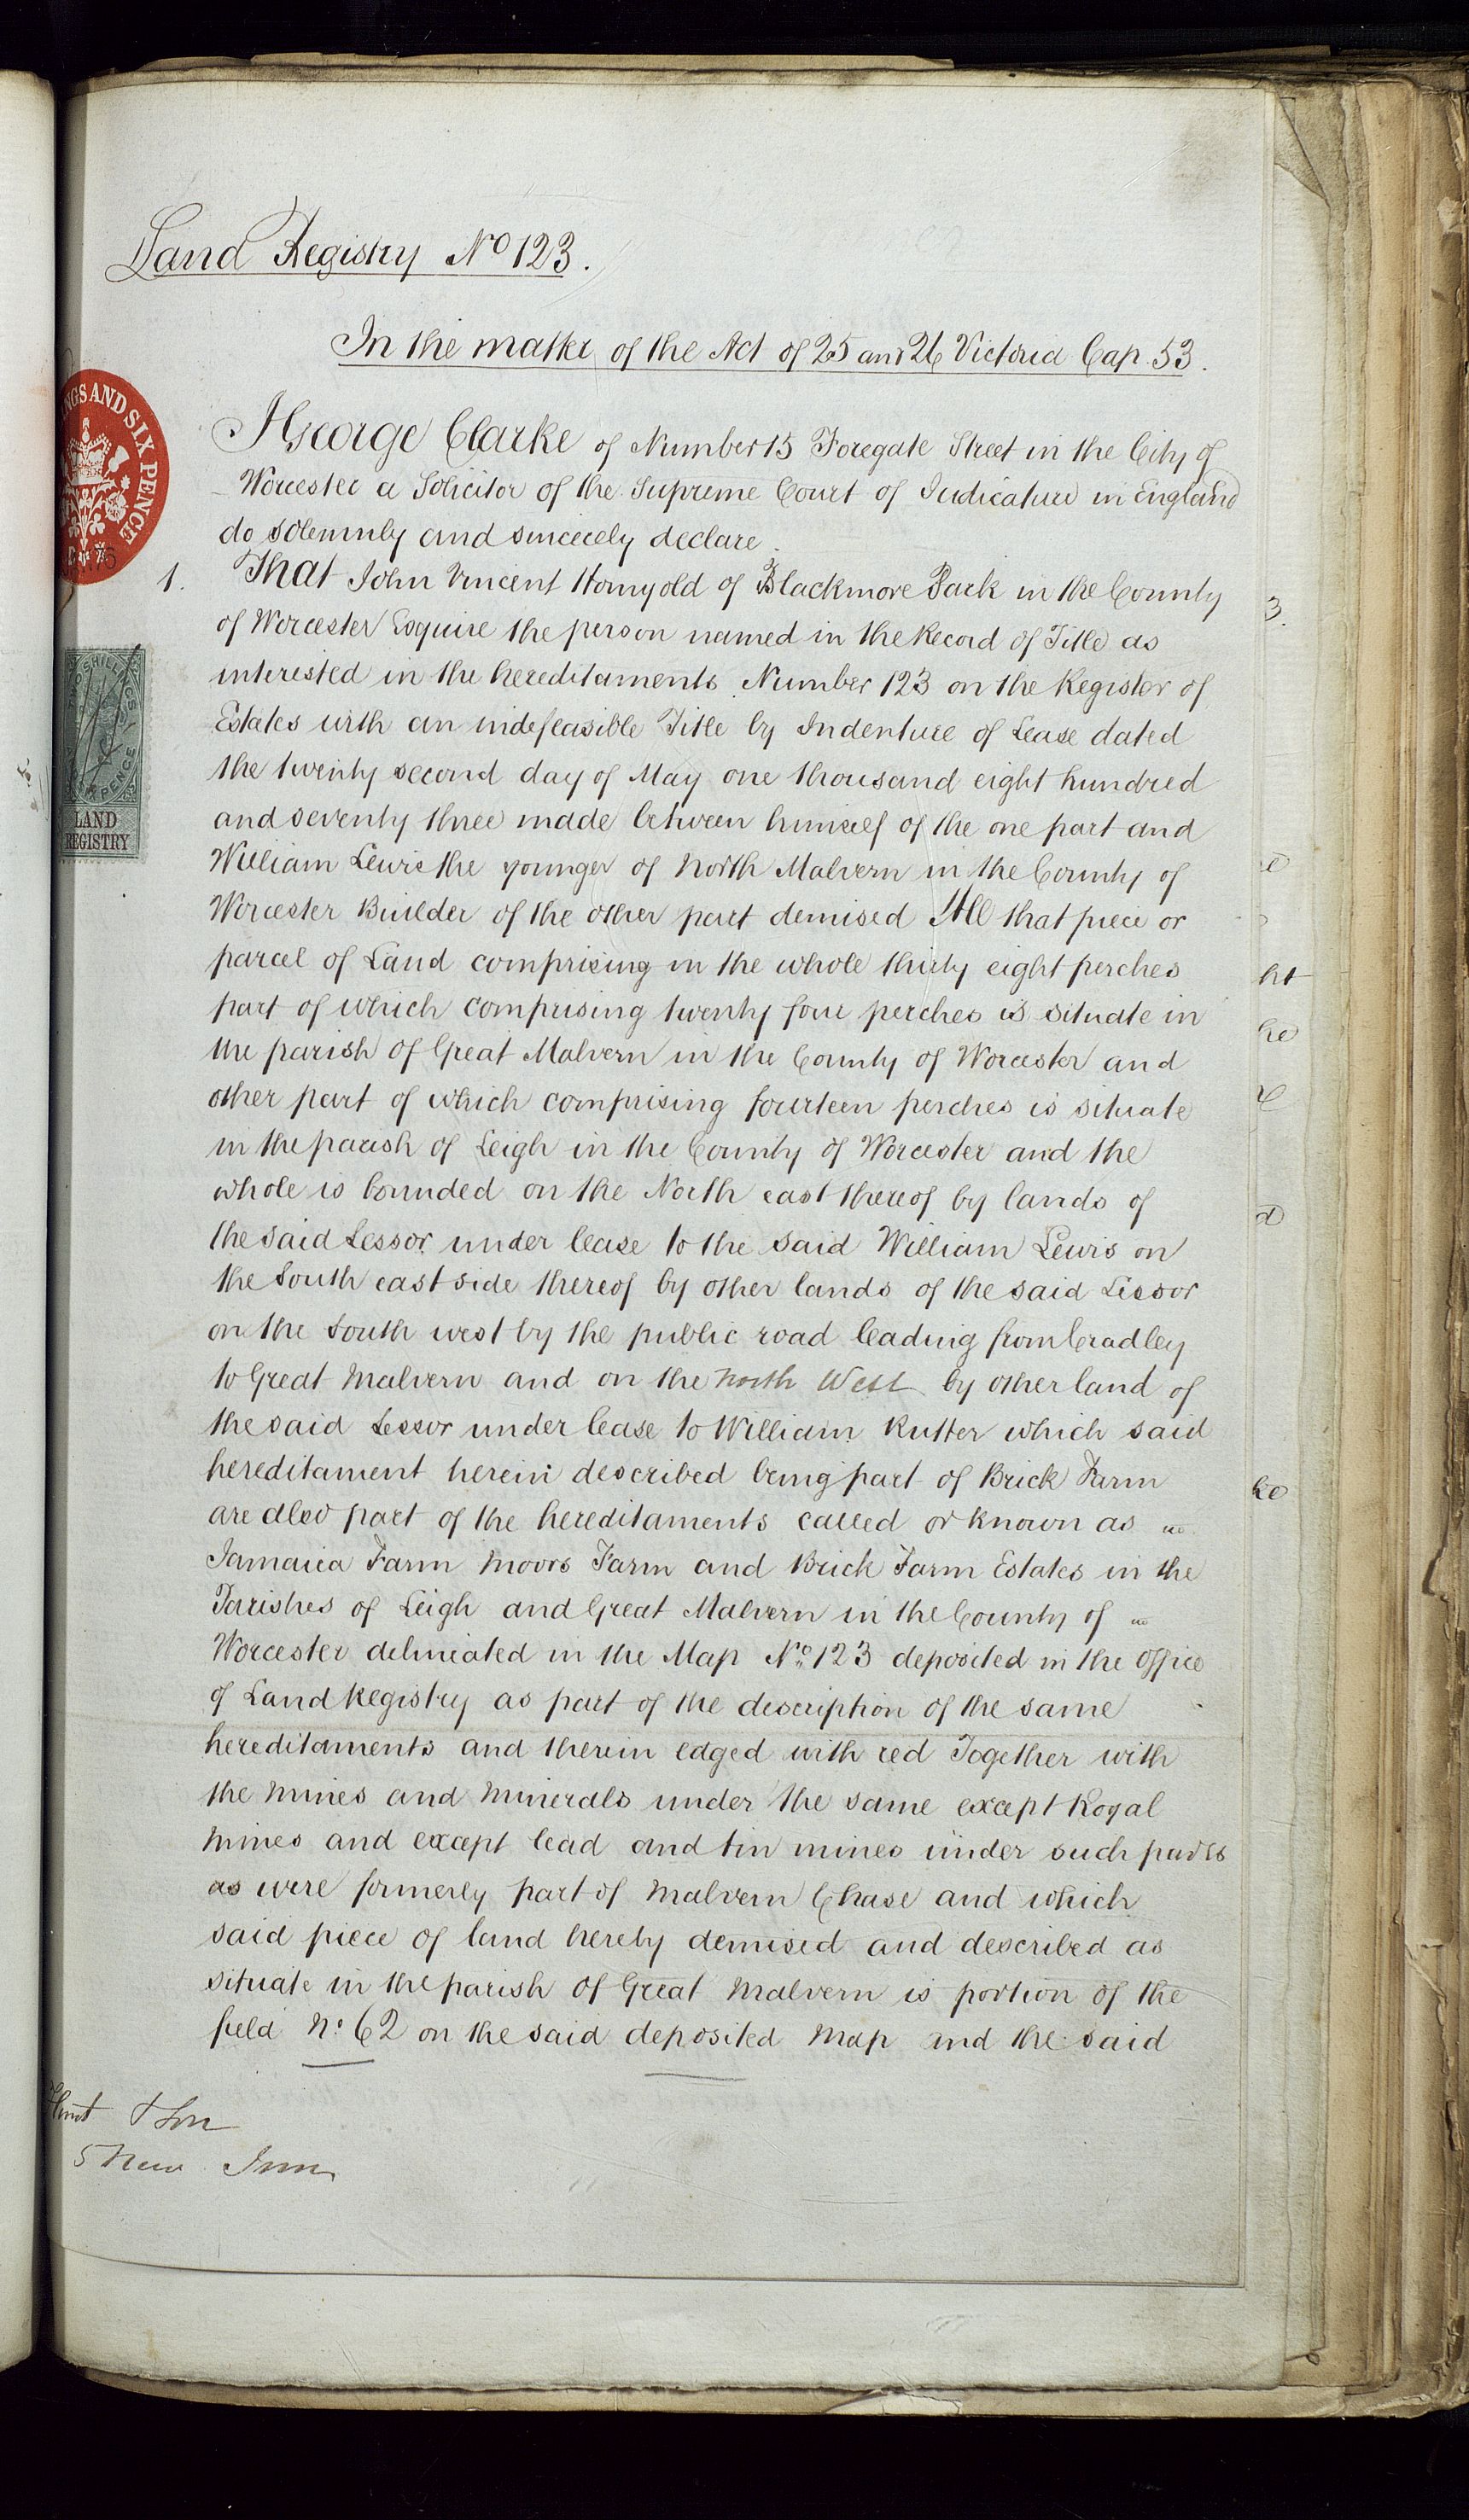 Land Registry No 123.
In the matter of the Act of 25 and 26 Victoria Cap. 53.
I George Clarke of Number 15 Foregate Street in the City of
Worcester a Solicitor of the Supreme Court of Judicature in England
do solemnly and sincerely declare.
1. That John Vincent Hornyold of Blackmore Park in the County
of Worcester Esquire the person named in the Record of Title as
interested in the hereditaments Number 123 on the Register of
Estates with an indefeasible Title by Indenture of Lease dated
the twenty second day of May one thousand eight hundred
and seventy three made between himself of the one part and
William Lewis the younger of North Malvern in the County of
Worcester Builder of the other part demised All that piece or
parcel of Land comprising in the whole thirty eight perches
part of which comprising twenty four perches is situate in
the parish of Great Malvern in the County of Worcester and
other part of which comprising fourteen perches is situate
in the parish of Leigh in the County of Worcester and the
whole is bounded on the North east thereof by lands of
the said Lessor under lease to the said William Lewis on
the South east side thereof by other lands of the said Lessor
on the South west by the public road leading from Cradley
to Great Malvern and on the North West by other land of
the said Lessor under lease to William Rutter which said
hereditament herein described being part of Brick Farm
are also part of the hereditaments called or known as
Jamaica Farm Moors Farm and Brick Farm Estates in the
Parishes of Leigh and Great Malvern in the County of
Worcester delineated in the Map No. 123 deposited in the Office
of Land Registry as part of the description of the same
hereditaments and therein edged with red Together with
the Mines and Minerals under the same except Royal
Mines and except lead and tin mines under such parts
as were formerly part of Malvern Chase and which
said piece of land hereby demised and described as
situate in the parish of Great Malvern is portion of the
field No. 62 on the said deposited Map and the said
& Son
5 New Inn
NGS AND SIX PENCE
LAND
REGISTRY
3.
ht
he
d